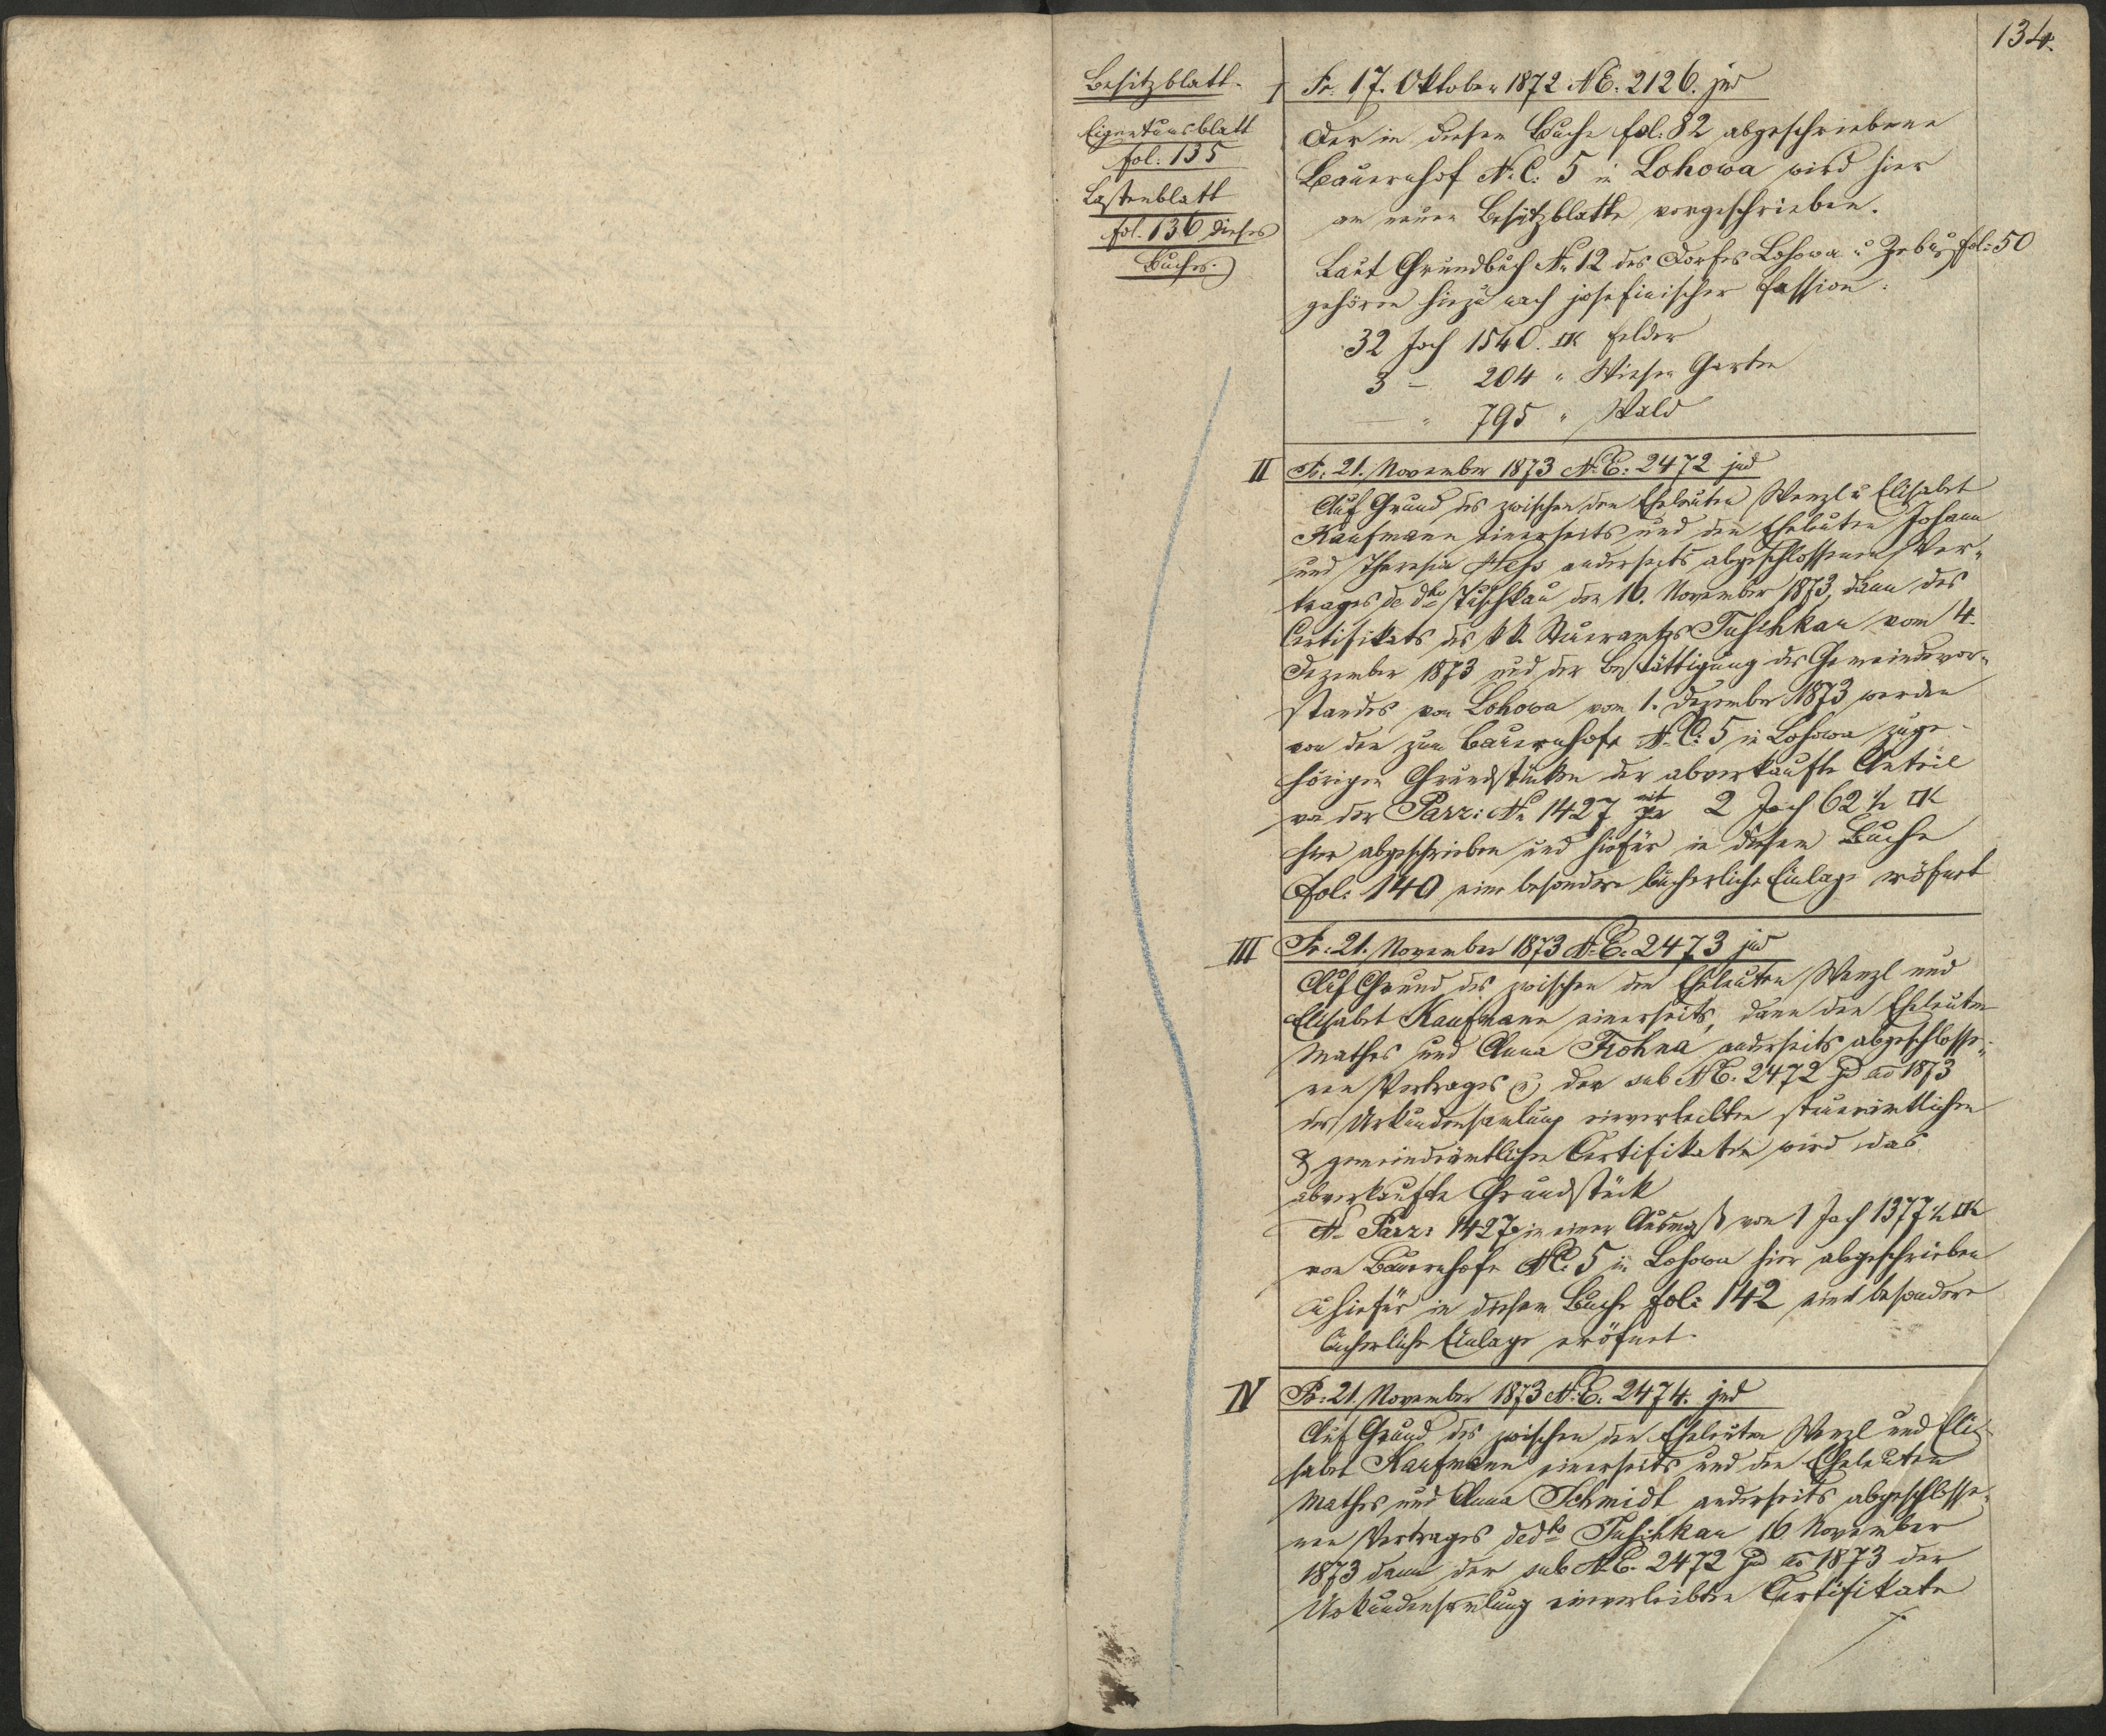 134.
Besitzblatt.
Eigentumsblatt
fol: 135
Lastenblatt
fol. 136 dieses
Buches.
I Pr. 17. Oktober 1872 NE. 2126. jud
Der in diesem Buche fol: 82 abgeschriebene
Bauernhof N. C. 5 in Lohowa wird hier
am neuen Besitzblatte vorgeschrieben.
Laut Grundbuch No 12 des Dorfes Lohowa u Zebus fol: 50
gehören hiezu nach josefinischer Fassion:
32 Joch 1540. □K Felder
3 – 204 " Wiesen Garten
— " 795 " Wald
II Pr: 21. November 1873 N.E: 2472 jud
Auf Grund des zwischen den Eheleuten Wenzl u Elisabet
Kaufmann einerseits und den Eheleuten Johann
und Theresia Hess anderseits abgeschlossenen Ver-
trages de dto Tuschkau den 16. November 1873, dann des
Certifikats des kk. Steueramtes Tuschkau vom 4.
Dezember 1873 und der Bestättigung des Gemeindevor-
standes von Lohowa vom 1. Dezember 1873 werden
von den zum Bauernhofe N. C: 5 in Lohowa zuge-
hörigen Grundstücken der abverkaufte Anteil
von der Parz: No 1427 mit 2 Joch 62 ½ □K
hier abgeschrieben und hiefür in diesem Buche
fol: 140 eine besondere bücherliche Einlage eröfnet
III Pr: 21. November 1873 N.E. 2473 jud
Auf Grund des zwischen den Eheleuten Wenzl und
Elisabet Kaufmann einerseits, dann den Eheleuten
Mathes und Anna Frohna anderseits abgeschlosse-
nen Vertrages u der sub NE. 2472 jd ao 1873
der Urkundensamlung einverleibten steuerämtlichen
& gemeindeämtlichen Certifikaten wird das
abverkaufte Grundstück
No Parz: 1427 in einer Ausmaß von 1 Joch 1377 ½ □K
vom Bauernhofe NC. 5 in Lohowa hier abgeschrieben
u hiefür in diesem Buche fol: 142 eine besondere
bücherliche Einlage eröfnet.
IV Pr: 21. November 1873 N.E. 2474. jud
Auf Grund des zwischen den Eheleuten Wenzl und Eli-
sabet Kaufmann einerseits und den Eheleuten
Mathes und Anna Schmidt anderseits abgeschlosse-
nen Vertrages dedto Tuschkau 16 November
1873 dann der sub N.E. 2472 jud ao 1873 der
Urkundensamlung einverleibten Certifikate